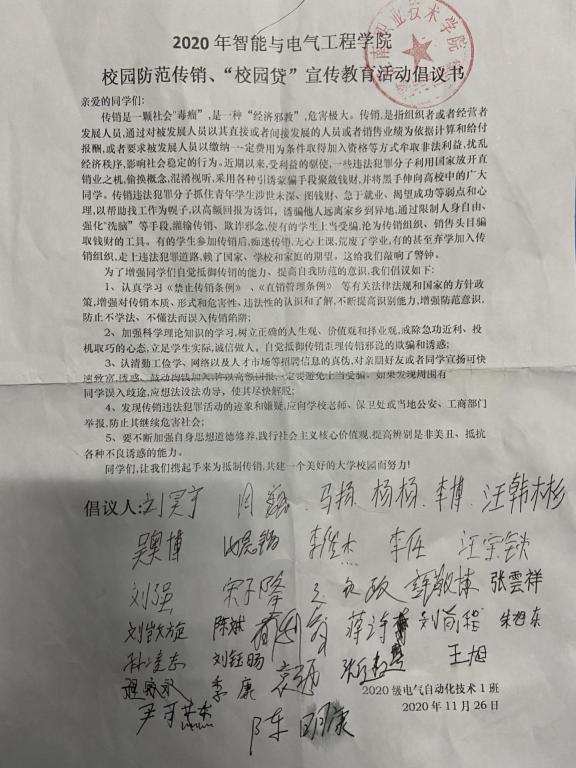 2020 年智能与电气工程学院
校园防范传销、“校园贷”宣传教育活动倡议书
职业技术学院
亲爱的同学们:
传销是一颗社会"毒瘤",是一种“经济邪教”,危害极大。传销,是指组织者或者经营者
发展人员,通过对被发展人员以其直接或者间接发展的人员或者销售业绩为依据计算和给付
报酬,或者要求被发展人员以缴纳一定费用为条件取得加入资格等方式牟取非法利益,扰乱
经济秩序,影响社会稳定的行为。近期以来,受利益的驱使,一些违法犯罪分子利用国家放开直
销业之机,偷换概念,混淆视听,采用各种引诱蒙骗手段聚敛钱财,并将黑手伸向高校中的广大
同学。传销违法犯罪分子抓住青年学生涉世未深、图钱财、急于就业、渴望成功等弱点和心
理,以帮助找工作为幌子,以高额回报为诱饵,诱骗他人远离家乡到异地,通过限制人身自由、
强化"洗脑"等手段,灌输传销、欺诈邪念,使有的学生上当受骗,沦为传销组织、销售头目骗
取钱财的工具。有的学生参加传销后,痴迷传销,无心上课,荒废了学业,有的甚至弃学加入传
销组织,走上违法犯罪道路,赖了国家、学校和家庭的期望。这给我们敲响了警钟。
为了增强同学们自觉抵御传销的能力、提高自我防范的意识,我们倡议如下:
1、认真学习《禁止传销条例》、《直销管理条例》等有关法律法规和国家的方针政
策,增强对传销本质、形式和危害性、违法性的认识和了解,不断提高识别能力,增强防范意识,
防止不学法、不懂法而误入传销陷阱;
2、加强科学理论知识的学习,树立正确的人生观、价值观和择业观,戒除急功近利、投
机取巧的心态,立足学生实际,诚信做人。自觉抵御传销歪理传销邪说的欺骗和诱惑;
3、认清勤工俭学、网络以及人才市场等招聘信息的真伪,对亲朋好友或者同学宣扬可快
速致富,诱惑、鼓动掏钱加入,许以高额回报,一定要避免上当受骗。如果发现周围有
同学误入歧途,应想法设法劝导,使其尽快解脱;
4、发现传销违法犯罪活动的迹象和嫌疑,应向学校老师、保卫处或当地公安、工商部门
举报,防止其继续危害社会;
5、要不断加强自身思想道德修养,践行社会主义核心价值观,提高辨别是非美丑、抵抗
各种不良诱惑的能力。
同学们,让我们携起手来为抵制传销,共建一个美好的大学校园而努力!
倡议人: 马扬 杨杨 李博 汪韩彬
吴奥博 李任 汪宗钦
刘强 张雲祥
陈斌 朱相东
孙凌志 刘钰旸 袁硕 王旭
李康
2020 级电气自动化技术 1 班
2020 年 11 月 26 日
陈明康